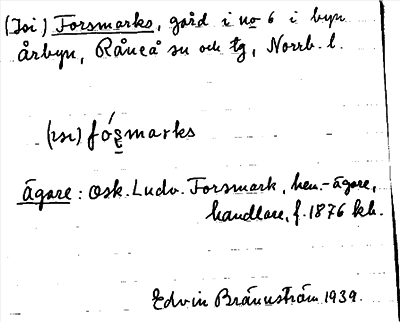 (Joi) Forsmarks, gård i no 6 i byn
Årbyn, Råneå sn och tg, Norrb. l.
fó̱smarks
Ägare: Osk. Ludv. Forsmark, hem.-ägare,
handlare, f. 1876 kb.
Edvin Brännström 1939.